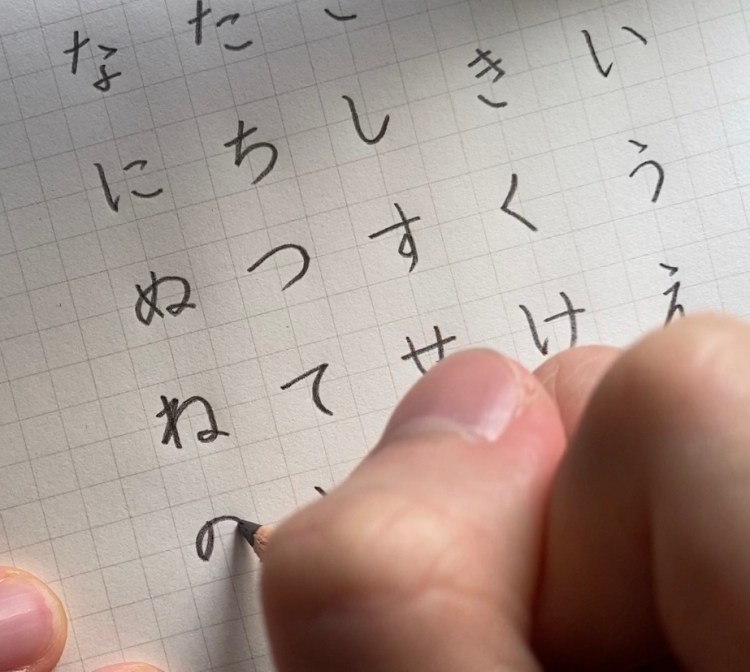 いうえ
きくけ
しすせ
たちつて
なにぬねの